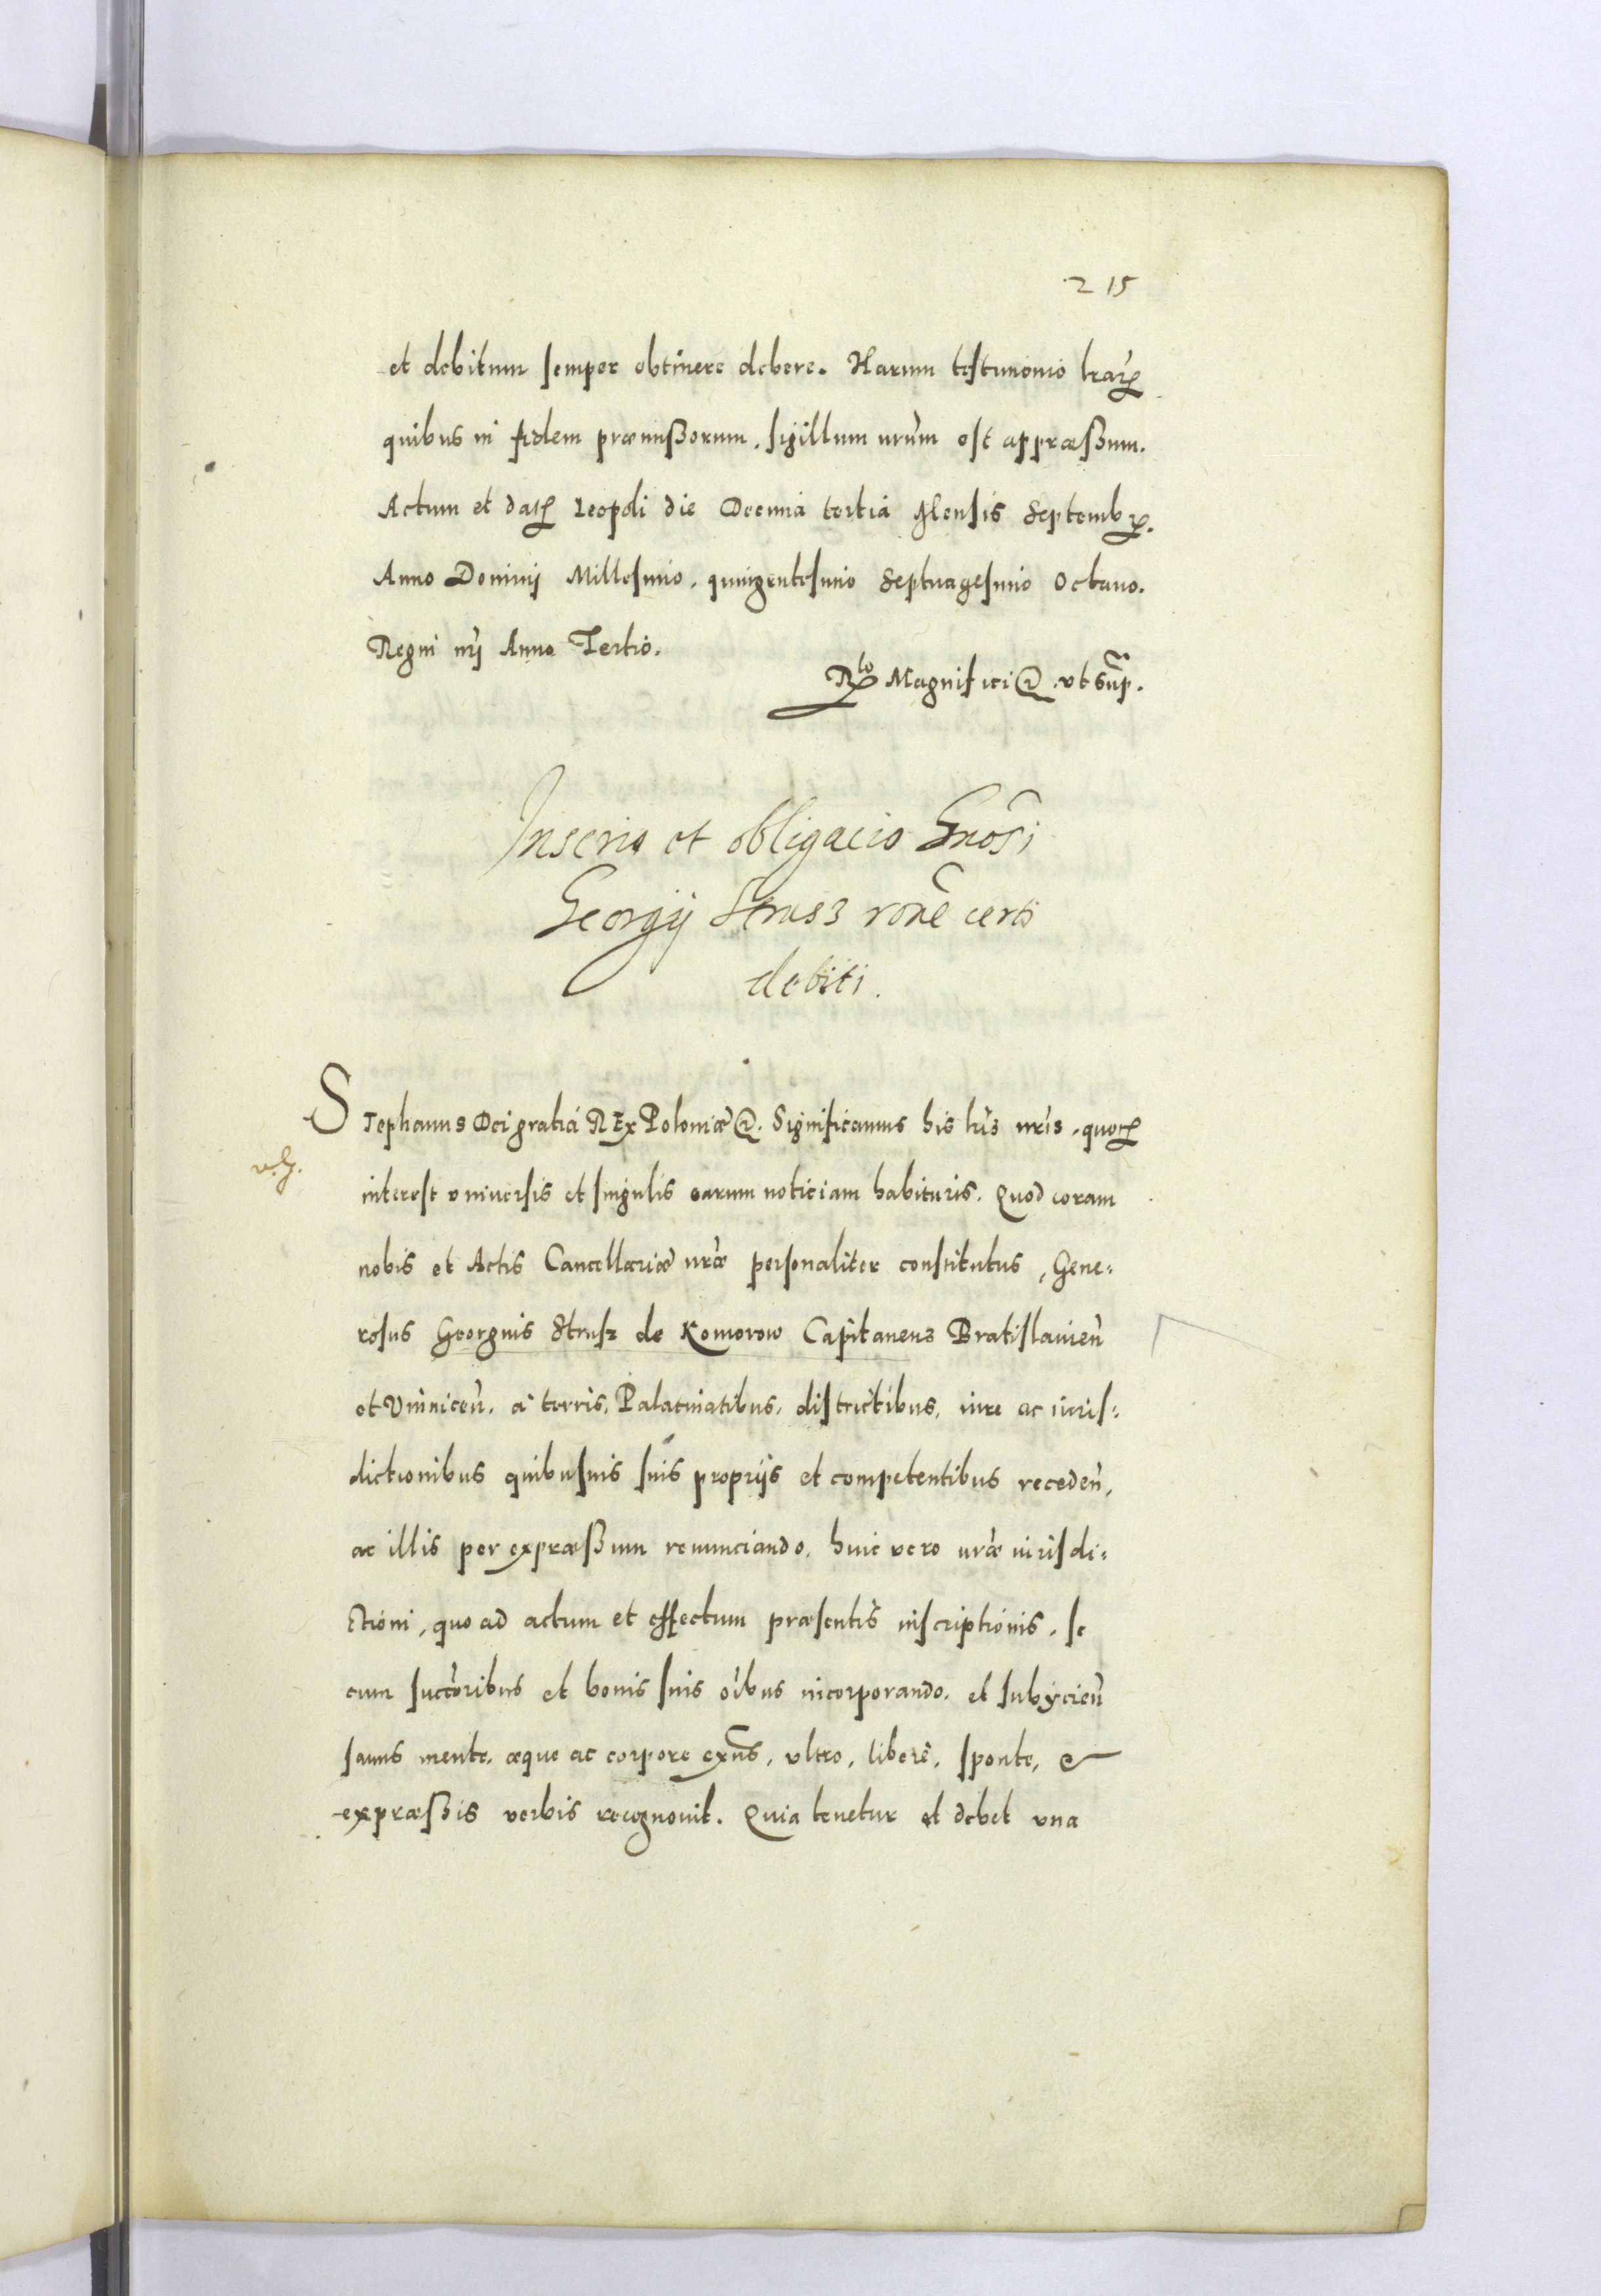 215
et debitum semper obtinere debere. Harum testimonio lrarꝝ
quibus in fidem præmissorum, sigillum nr̃um est appræssum.
Actum et datꝝ Leopoli die Decima tertia Mensis Septembꝝ.
Anno Dominij Millesimo, quingentesimo Septuagesimo Octauo.
Regni nr̃j Anno Tertio.
Rlo Magnifici @ vt sup̃.
Inscrio et obligacio Gnosĩ
Georgij Strusz rone͂ certi
debiti.
Stephanus Dei gratiá REx Poloniæ @. Significamus his lrĩs nrĩs, quorꝝ
interest vniuersis et singulis earum noticiam habituris. Quod coram
nobis et Actis Cancellariæ nr̃æ personaliter constitutus, Gene:
rosus Georgius Strusz de Komorow Capitaneus Bratislauien͂
et Vinnicen͂. á terris, Palatinatibus, districtibus, iure ac iuris:
dictionibus quibusuis suis proprijs et competentibus receden͂,
ac illis per expræssum renunciando, huic vero nr̃æ iurisdi:
ctioni, quo ad actum et effectum præsentis inscriptionis, se
cum succ͂oribus et bonis suis oĩbus incorporando, et subijcien͂
sanus mente, æque ac corpore exñs, vltro, liberè, sponte, &
expræssis verbis recognouit. Quia tenetur et debet vna